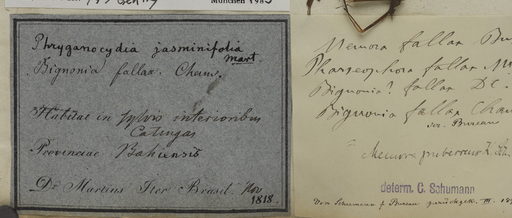 München 198
Phryganocydia jasminifolia
Mart
Bignonia fallax. Cham.
Habitat in sylvis interioribus
Catingas
Provinciae Bahiensis
Dr. Martius Iter Brasil. Nov
1818.
Memora fallax Bu
fallax M
Bignonia? fallax DC.
Bignonia fallax Cham
Bureau
Memora
determ. C. Schumann
Von Schumann f. Bureau zurückgek. III. 18